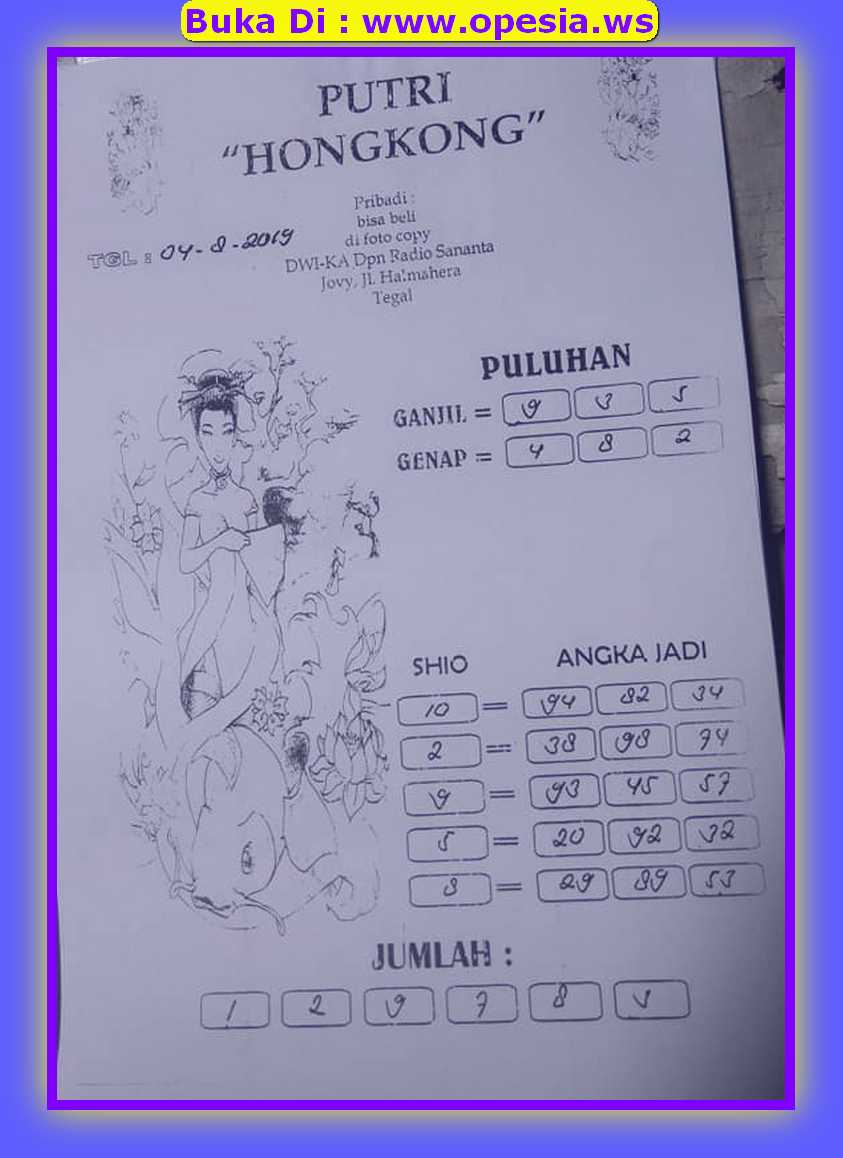 Buka Di : www.opesia.ws
PUTRI
"HONGKONG"
Pribadi :
bisa beli
di foto copy
DWI-KA Dpn Radio Sananta
Jovy, Jl. Halmahera
Tegal
TGL : 04-8-2019
PULUHAN
GANJIL = 9 3 5
GENAP = 4 8 2
SHIO ANGKA JADI
10 = 94 82 34
2 = 38 98
9 = 93 45 57
5 = 20 92 32
8 = 29 89 53
JUMLAH :
1 2 9 7 8